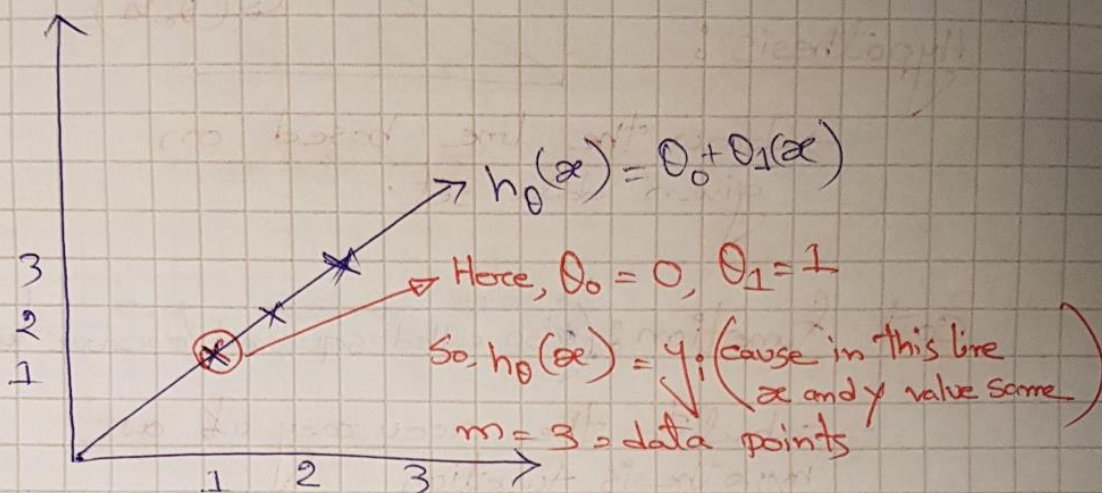 h_θ(x) = θ_0 + θ_1(x)
3
Here, θ_0 = 0, θ_1 = 1
2
So, h_θ(x) = y_i (cause in this line
1
x and y value same)
m = 3 = data points
1 2 3